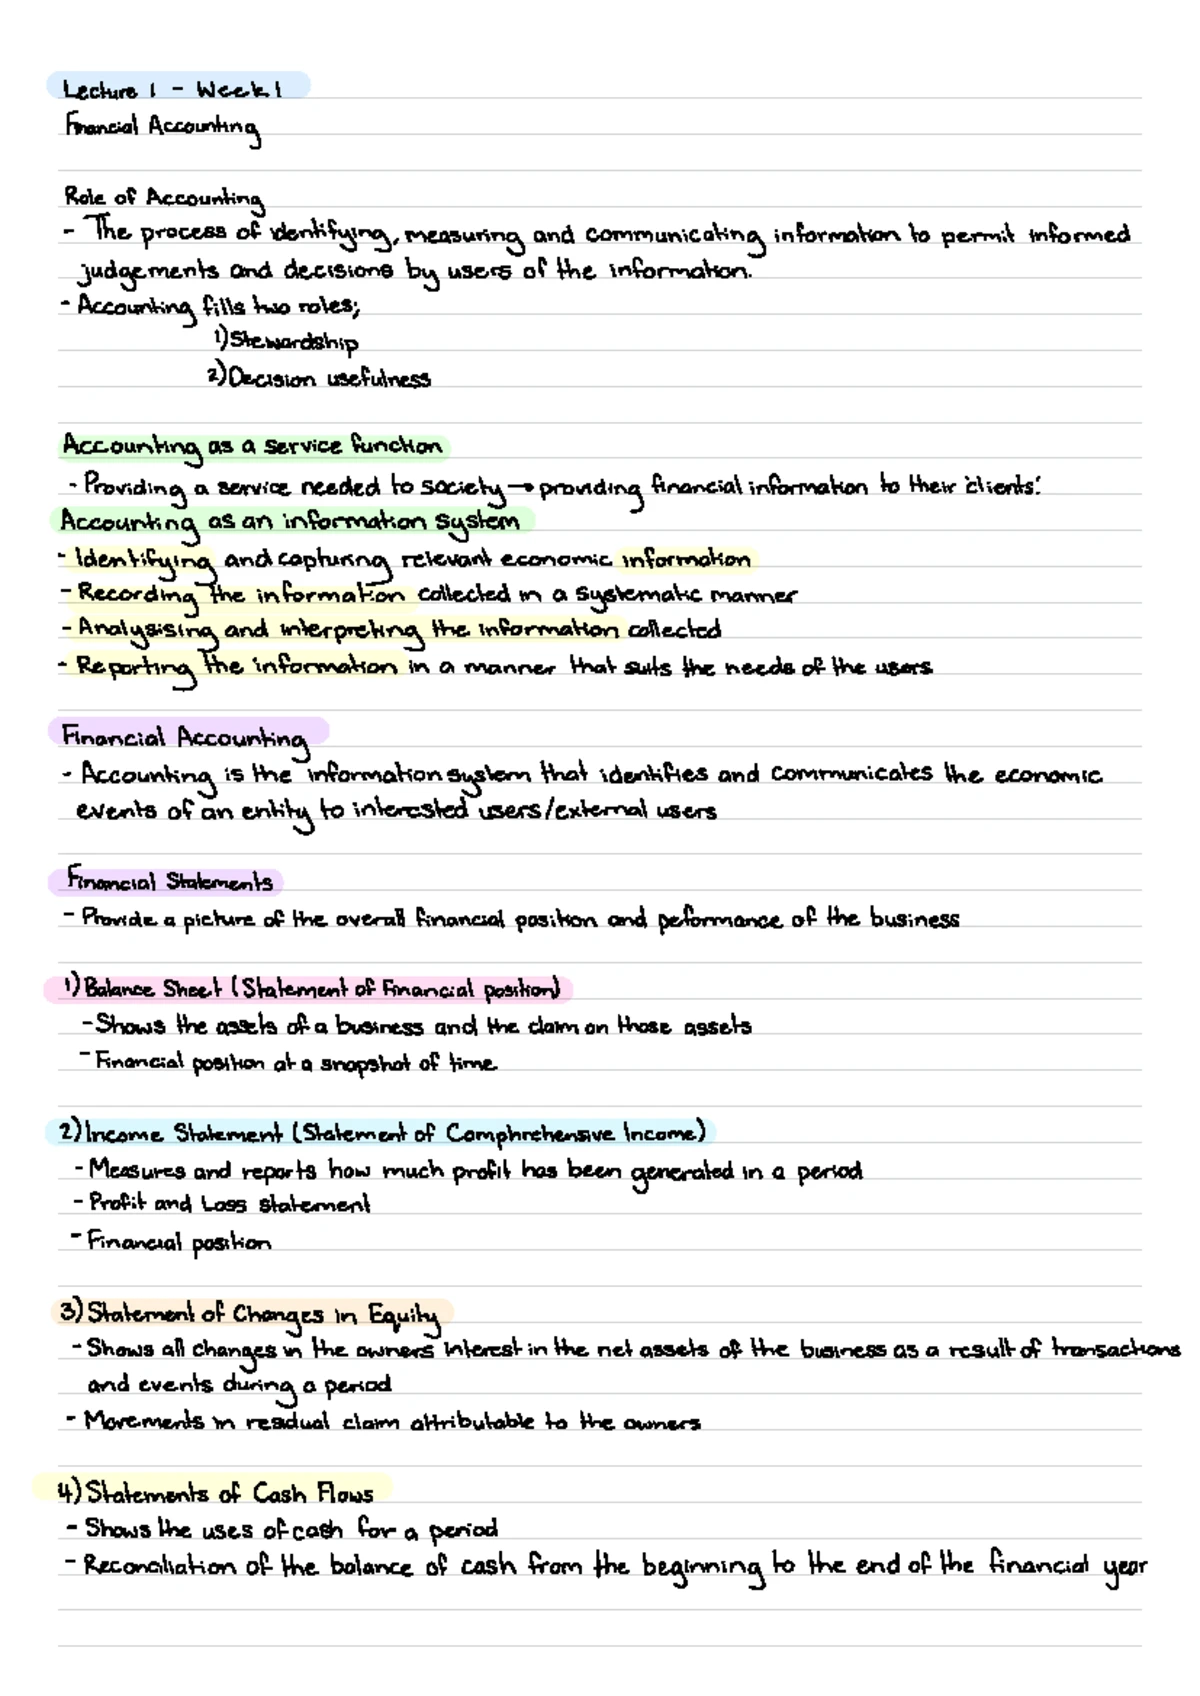 Lecture 1 - Week 1
Financial Accounting
Role of Accounting
- The process of identifying, measuring and communicating information to permit informed
judgements and decisions by users of the information.
- Accounting fills two roles;
1) Stewardship
2) Decision usefulness
Accounting as a service function
- Providing a service needed to society → providing financial information to their 'clients'.
Accounting as an information system
- Identifying and capturing relevant economic information
- Recording the information collected in a systematic manner
- Analysising and interpreting the information collected
- Reporting the information in a manner that suits the needs of the users
Financial Accounting
- Accounting is the information system that identifies and communicates the economic
events of an entity to interested users/external users
Financial Statements
- Provide a picture of the overall financial position and peformance of the business
1) Balance Sheet (Statement of Financial position)
- Shows the assets of a business and the claim on those assets
- Financial position at a snapshot of time
2) Income Statement (Statement of Comphrehensive Income)
- Measures and reports how much profit has been generated in a period
- Profit and Loss statement
- Financial position
3) Statement of Changes in Equity
- Shows all changes in the owners interest in the net assets of the business as a result of transactions
and events during a period
- Movements in residual claim attributable to the owners
4) Statements of Cash Flows
- Shows the uses of cash for a period
- Reconciliation of the balance of cash from the beginning to the end of the financial year